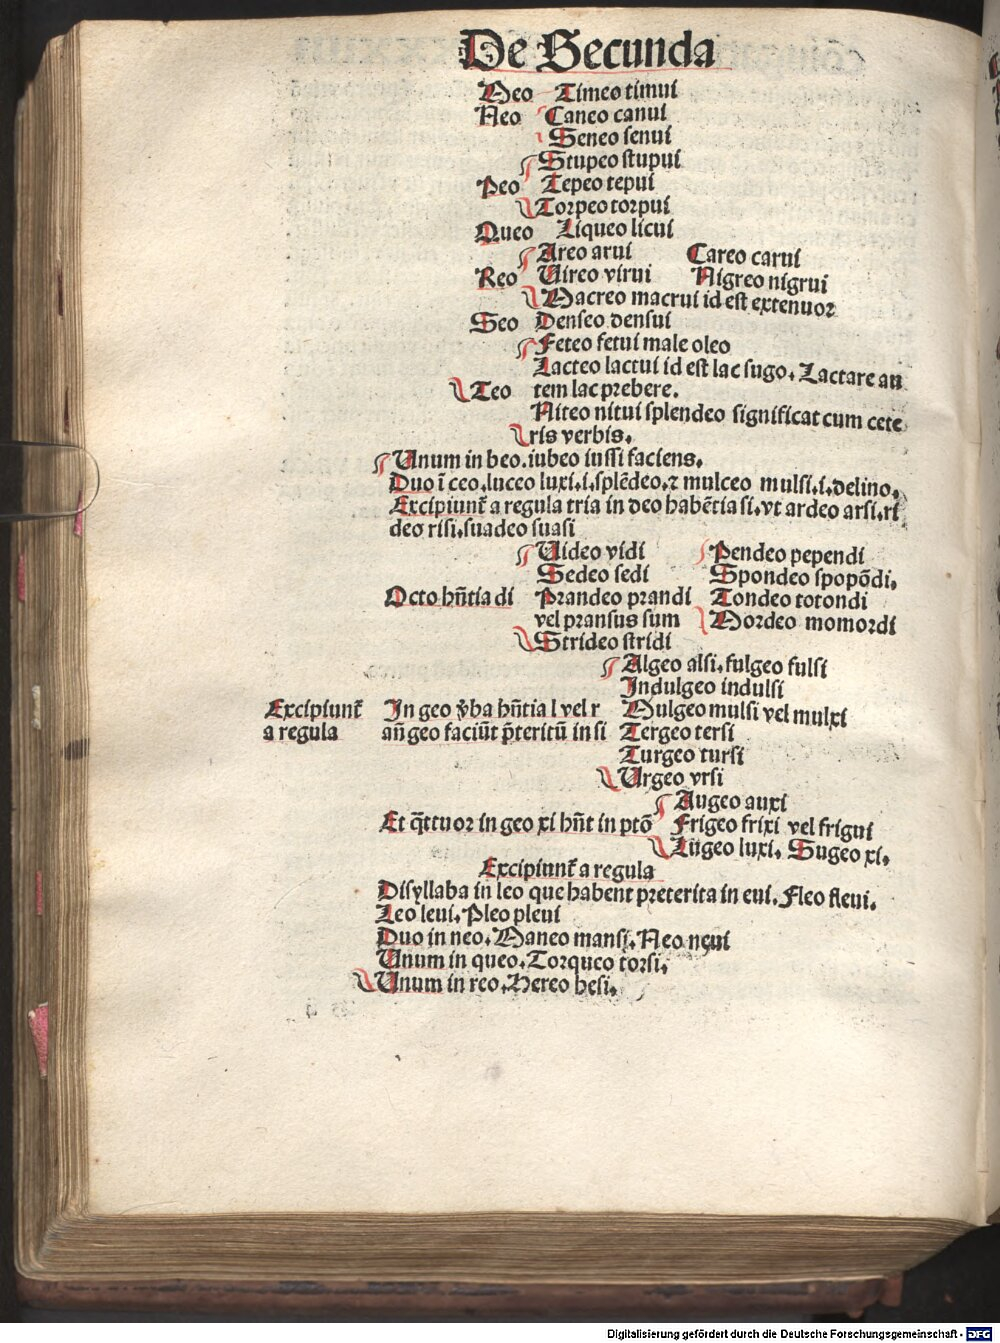 De Secunda
Meo Timeo timui
Neo Caneo canui
Seneo senui
Stupeo stupui
Peo Tepeo tepui
Torpeo torpui
Queo Liqueo licui
Areo arui Careo carui
Reo Uireo virui Nigreo nigrui
Macreo macrui id est extenuor
Seo Denseo densui
Feteo fetui male oleo
Lacteo lactui id est lac sugo. Lactare au
Teo tem lac prebere.
Niteo nitui splendeo significat cum cete
ris verbis.
Unum in beo. iubeo iussi faciens.
Duo ī ceo. luceo luxi. i. splēdeo. ⁊ mulceo mulsi. i. delino.
Excipiunt̄ a regula tria in deo habētia si. vt ardeo arsi. ri
deo risi. suadeo suasi
Uideo vidi Pendeo pependi
Sedeo sedi Spondeo spopōdi.
Octo hn̄tia di Prandeo prandi Tondeo totondi
vel pransus sum Mordeo momordi
Strideo stridi
Algeo alsi. fulgeo fulsi
Indulgeo indulsi
Excipiunt̄ In geo v̄ba hn̄tia l vel r Mulgeo mulsi vel mulxi
a regula an̄ geo faciūt p̄teritū in si Tergeo tersi
Turgeo tursi
Urgeo vrsi
Augeo auxi
Et q̄ttuor in geo xi hn̄t in ptō Frigeo frixi vel frigui
Lūgeo luxi. Sugeo xi.
Excipiunt̄ a regula
Disyllaba in leo que habent preterita in eui. Fleo fleui.
Leo leui. Pleo pleui
Duo in neo. Maneo mansi. Neo neui
Unum in queo. Torqueo torsi.
Unum in reo. Hereo hesi.
Digitalisierung gefördert durch die Deutsche Forschungsgemeinschaft - DFG